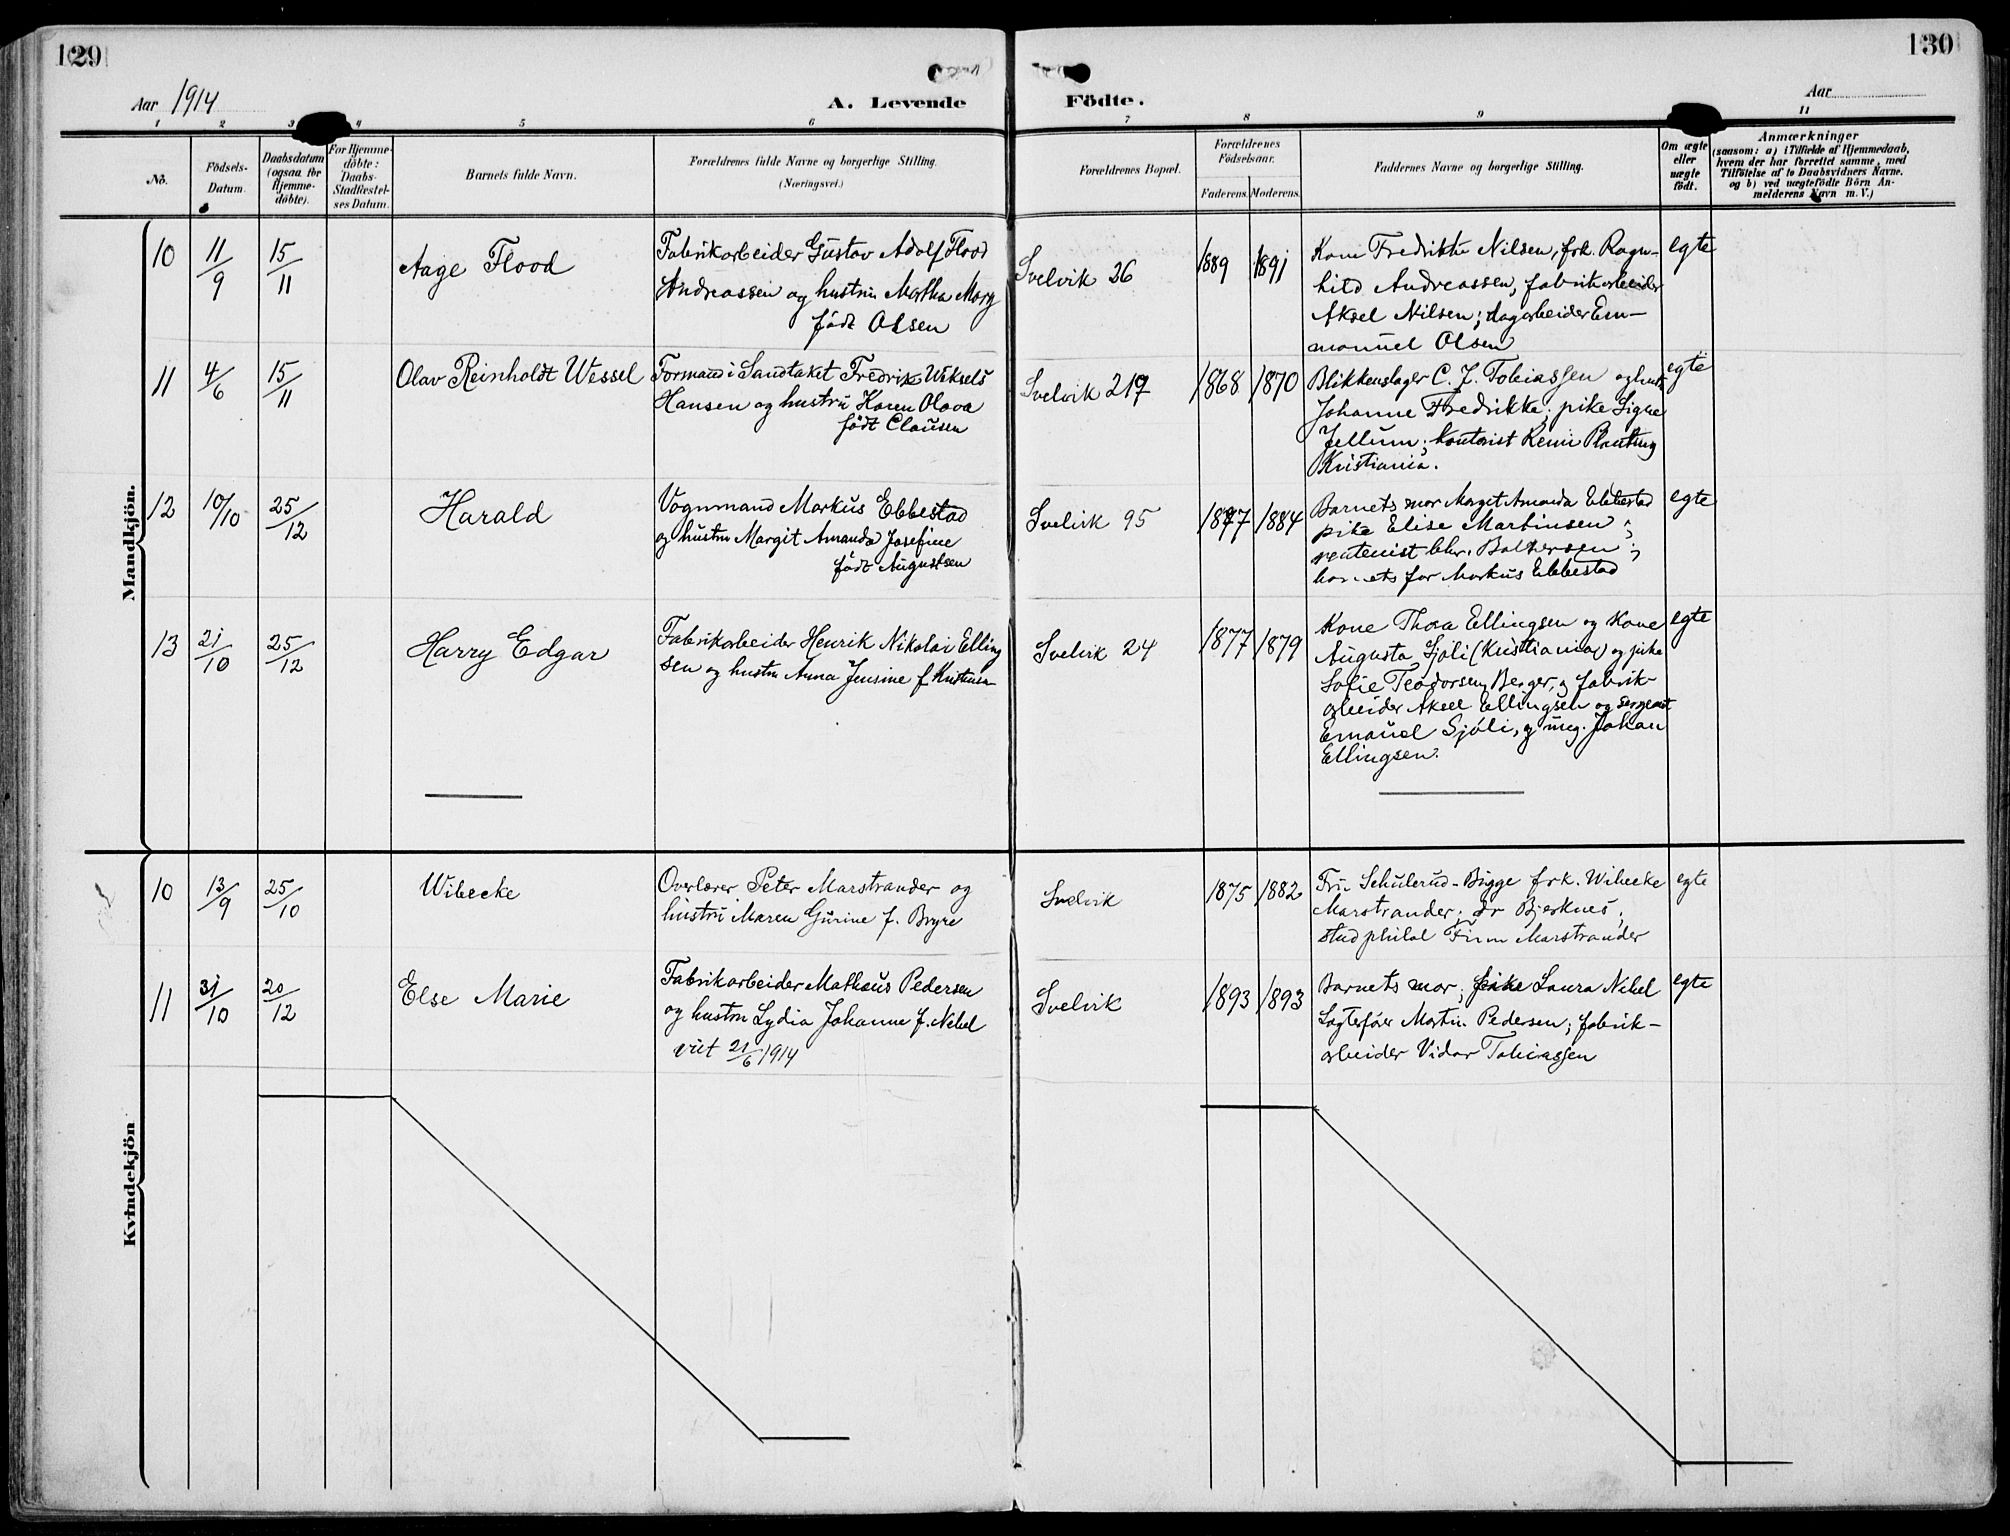 129
130
Aar 1914
A. Levende
Födte.
Aar
1
2
3
4
5
6
7
8
9
11
No.
Födsels-
Datum.
Daabsdatum
(ogsaa for
Hjemme-
döbte).
For Hjemme-
döbte:
Daabs-
Stadfæstel-
ses Datum.
Barnets fulde Navn.
Forældrenes fulde Navne og borgerlige Stilling.
(Næringsvei.)
Forældrenes Bopæl.
Forældrenes
Födselsaar.
Faderens.
Moderens.
Faddernes Navne og borgerlige Stilling.
Om ægte
eller
uægte
födt.
Anmærkninger
(saasom: a) i Tilfælde af Hjemmedaab,
hvem der har forrettet samme, med
Tilföielse af to Daabsvidners Navne.
og b) ved uægtefödte Börn An-
melderens Navn m. V.)
Mandkjön.
10
11/9
15/11
Aage Flood
Fabrikarbeider Gustav Adolf Flood
Andreassen og hustru Martha Mary
født Olsen
Svelvik 26
1889
1891
Kone Fredrikke Nilsen, frk. Ragn-
hild Andreassen, fabrikarbeider
Aksel Nilsen; dagarbeider Em-
manuel Olsen
egte
11
4/6
15/11
Olav Reinholdt Wessel
Formand i Sandtaket Fredrik
Hansen og hustru Karen Olava
født Clausen
Svelvik 217
1868
1870
Blikkenslager C. J. Tobiassen og hustr
Johanne Fredrikke; pike Signe
Jellum; kontorist
Kristiania.
egte
12
10/10
25/12
Harald
Vognmand Markus Ebbestad
og hustru Margit Amanda Josefine
født Augustsen
Svelvik 95
1877
1884
Barnets mor Margit Amanda Ebbestad
pike Elise Martinsen;
Chr. Baltersen;
barnets far Markus Ebbestad
egte
13
21/10
25/12
Harry Edgar
Fabrikarbeider Henrik Nikolai Elling
sen og hustru Anna Jensine f. Kristiansen
Svelvik 24
1877
1879
Kone Thora Ellingsen og kone
Augusta Sjøli (Kristiania) og pike
Sofie Teodorsen, Berger, og fabrik-
arbeider Aksel Ellingsen og sergeant
Emanuel Sjøli, og ung. Johan
Ellingsen.
egte
Kvindekjön
10
13/9
25/10
Wibecke
Overlærer Peter Marstrander og
hustru Maren Gurine f. Bryre
Svelvik
1875
1882
Fru Schulerud-Bugge frk. Wibecke
Marstrander; dr Bjerknes;
stud philol Finn Marstrander
egte
11
31/10
20/12
Else Marie
Fabrikarbeider Mathæus Pedersen
og hustru Lydia Johanne f. Nebel
viet 21/6 1914
Svelvik
1893
1893
Barnets mor; pike Laura Nebel
Martin Pedersen; fabrik-
arbeider Vidar Tobiassen
egte